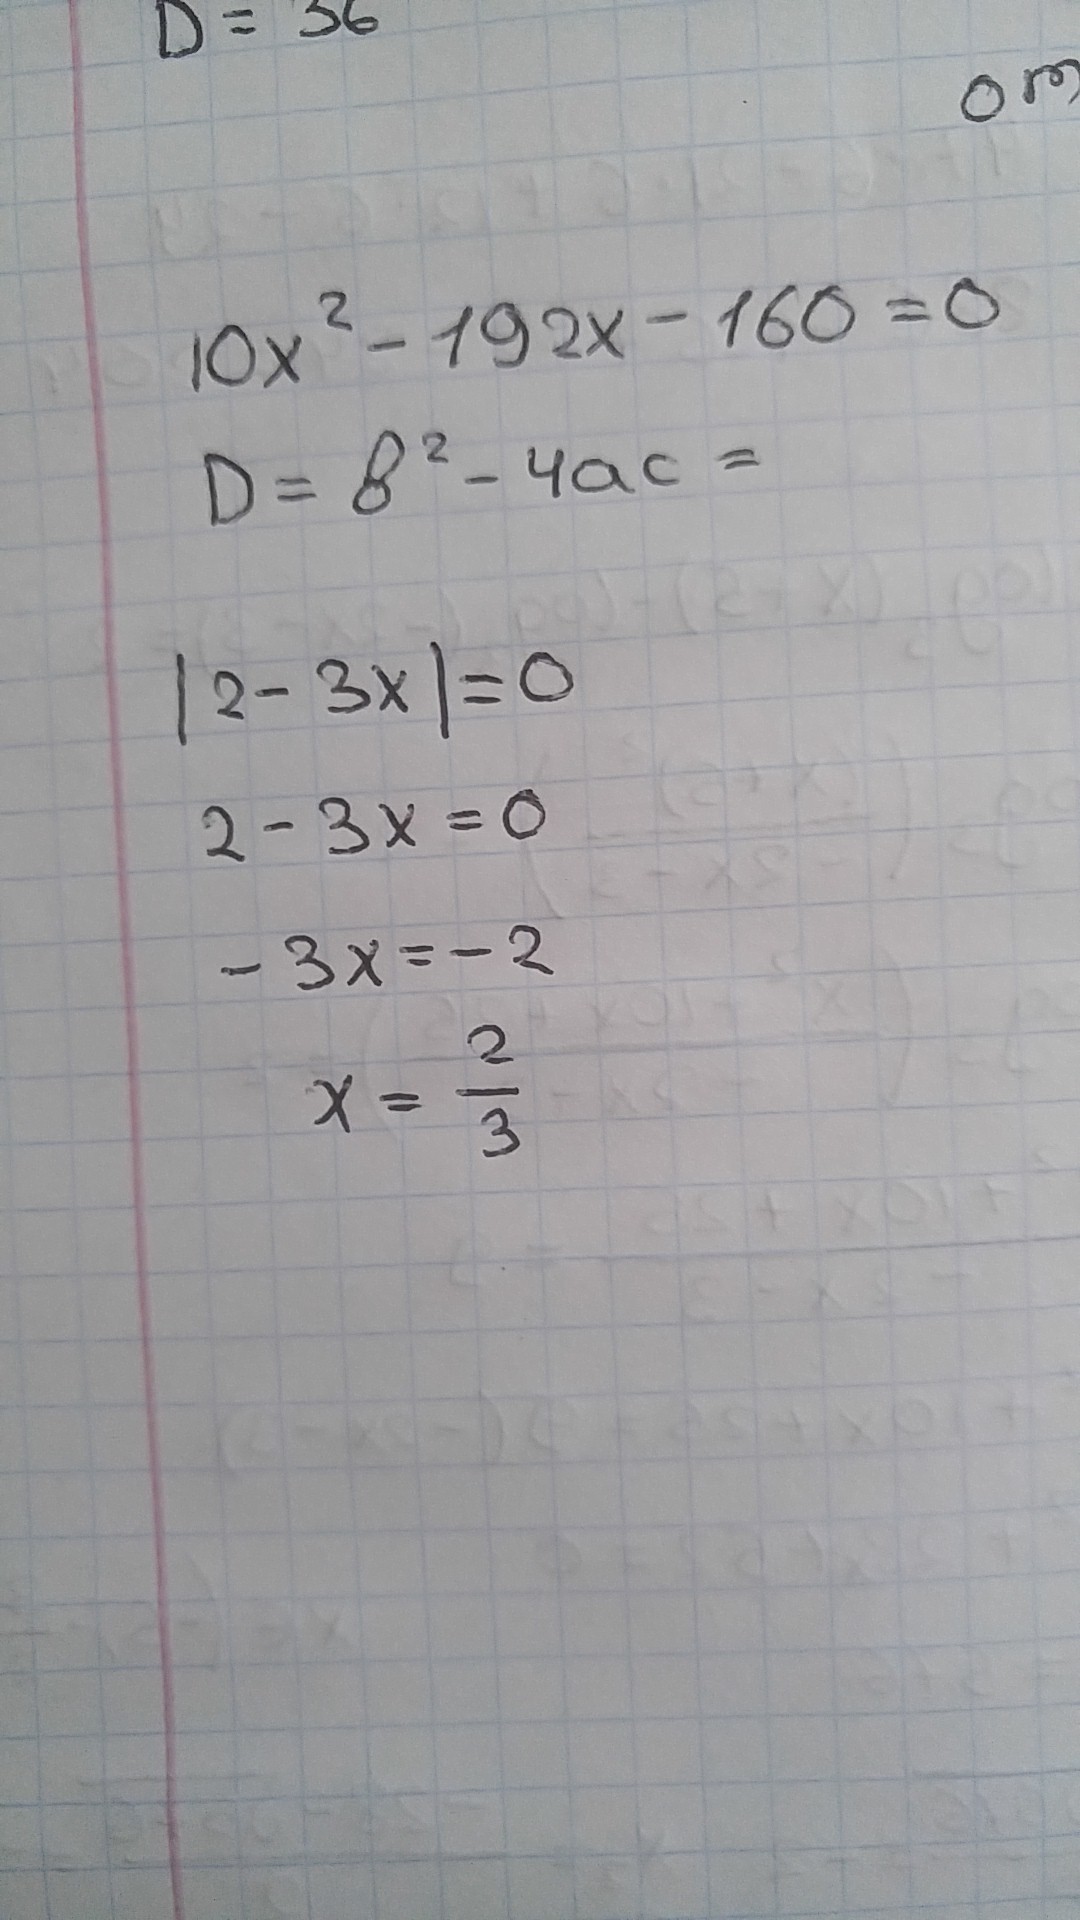 D = 36
от
10x² - 192x - 160 = 0
D = в² - 4ac =
|2 - 3x| = 0
2 - 3x = 0
- 3x = - 2
x = 2/3